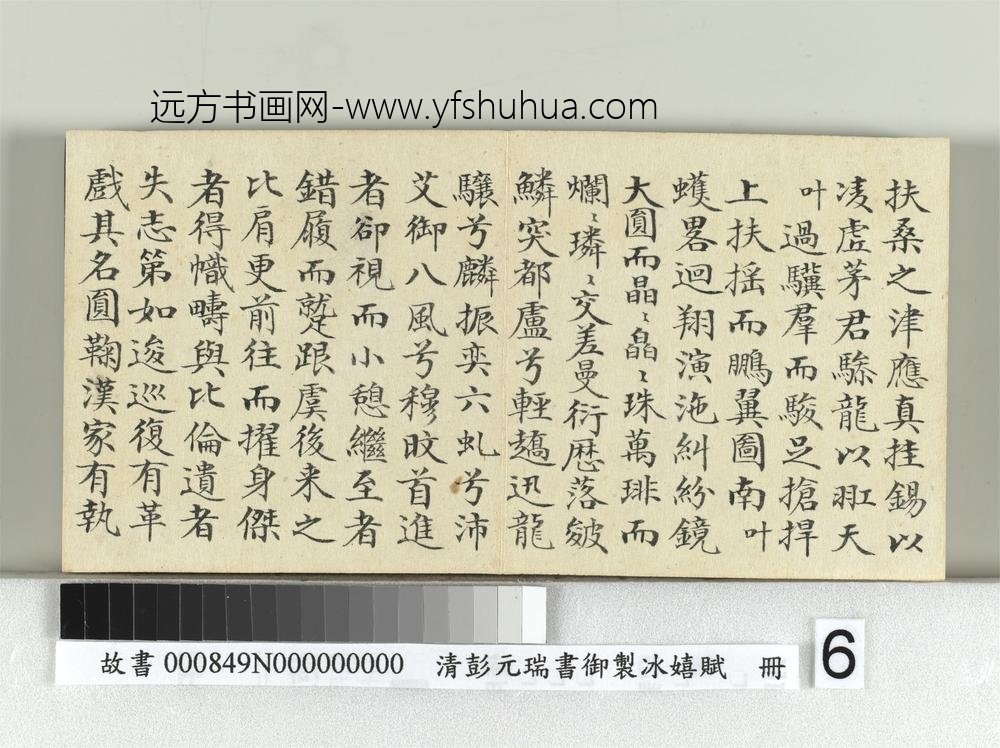 远方书画网-www.yfshuhua.com
扶桑之津應真挂錫以
凌虛茅君驂龍以羾天
叶過驥羣而駿足搶捍
上扶揺而鵬翼圖南叶
蠖畧迴翔演迤糾紛鏡
大圓而晶〻皛〻珠萬琲而
爛〻璘〻交差曼衍歴落皴
鱗突都盧兮輕趫迅龍
驤兮麟振奕六虬兮沛
艾御八風兮穆旼首進
者卻視而小憩繼至者
錯履而蹵跟虞後来之
比肩更前往而擢身傑
者得幟疇與比倫遺者
失志第如逡巡復有革
戲其名圓鞠漢家有執
故書 000849N000000000 清彭元瑞書御製冰嬉賦 冊
6